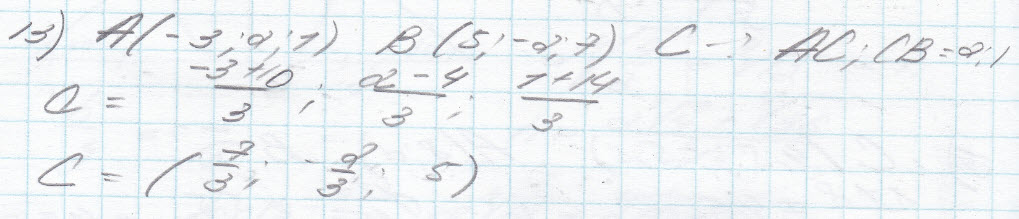 13) A(-3;2;1) B(5;-2;7) C -: AC;CB=2:1
C = (-3+10)/3 ; (2-4)/3 ; (1+14)/3
C = (7/3; -2/3; 5)